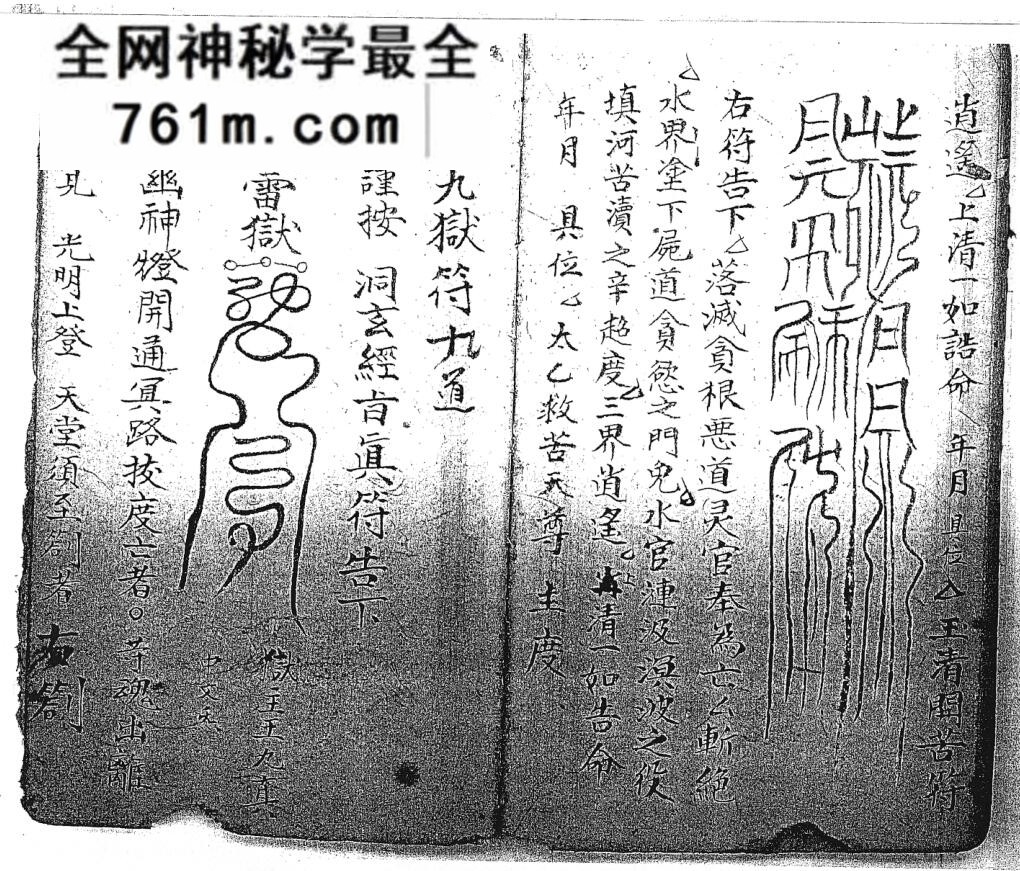 全网神秘学最全
761m.com
逍遥上清一如誥命 年月 具位 玉清開苦符
右符告下 落滅貪根悪道灵官奉為亡厶斬絕
水界塗下屍道貪慾之門免水官漣汲溟波之役
填河苦瀆之辛超度三界逍遙上清一如告命
年月 具位 太乙救苦天尊 主度
九獄符九道
謹按 洞玄經旨真符告下
雷獄
獄主王九真
幽神燈開通冥路拔度亡者○等魂出離
見 光明上登 天堂須至劄者 右劄